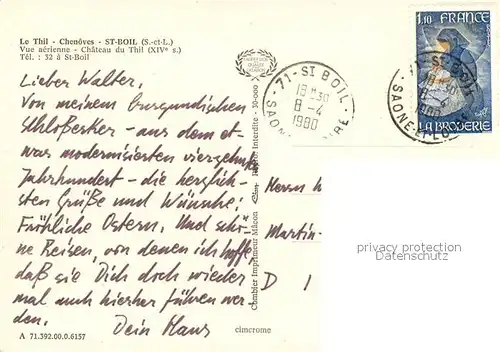 Le Thil - Chenôves - ST-BOIL (S.-et-L.)
Vue aérienne - Château du Thil (XIVe s.)
Tél. : 32 à St-Boil
Lieber Walter,
Von meinem burgundischen
Schloßerker - aus dem et-
was modernisierten vierzehnten
Jahrhundert - die herzlich-
sten Grüße und Wünsche:
Fröhliche Ostern. Und schö-
ne Reisen, von denen ich hoffe,
daß sie Dich doch wieder
mal auch hierher führen wer-
den.
Dein Klaus
A 71.392.00.0.6157
cimcrome
Combier Imprimeur Mâcon
Interdite - 30-000
71-ST BOIL
18H30
8-4
1980
SAONE
1,10 FRANCE
LA BRODERIE
71-ST-BOIL
18H30
8-4
1980
SAONE-
Herrn
Martin-
D
privacy protection
Datenschutz